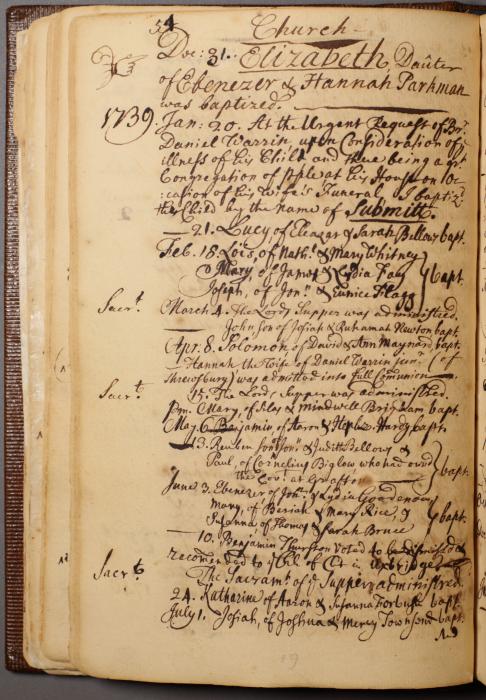 54 Church
Dec: 31. Elizabeth Dauter
of Ebenezer & Hannah Parkman
was baptized.
1739 Jan: 20. At the Urgent Request of Br.
Daniel Warrin, upon Consideration of ye
illness of his Child and there being a
Congregation of pple at his House on oc-
casion of his Wife's Funeral I baptiz'd
the Child by the name of Submitt.
21. Lucy of Eleazar & Sarah Bellows bapt.
Feb. 18. Lois, of Nathl. & Mary Whitney
Mary, of James & Lydia Fay } bapt.
Joseph, of Jonn. & Eunice Flagg
Sacrt. March 4. The Lords Supper was administred.
John, Son of Josiah & Ruhamah Newton bapt.
Apr. 8. Solomon, of David & Ann Maynard bapt.
Hannah the Wife of Daniel Warrin junr. (of
Shrewsbury) was admitted into full Comunion
Sacrt. 15. The Lords Supper was administred.
pm. Mary, of Silas & Mindwell Brigham bapt.
May 6. Benjamin of Aaron & Hardy bapt.
13. Reuben Son of & Judith Bellows &
Paul, of Cornelius Biglow who had ownd } bapt.
the Covt. at Grafton
June 3. Ebenezer of Lydia Goodenow
Mary, of Beriah & Mary Rice } bapt.
Susanna of Thomas & Sarah Bruce
10. Benjamin Thurston Voted to be dismiss'd &
recomended to ye Chh of Ct in Uxbridge
Sacrt. The Sacramt. of ye Supper administred.
24. Katharine of Aaron & Susanna Forbush bapt.
July 1. Josiah, of Joshua & Mercy Townsend bapt.